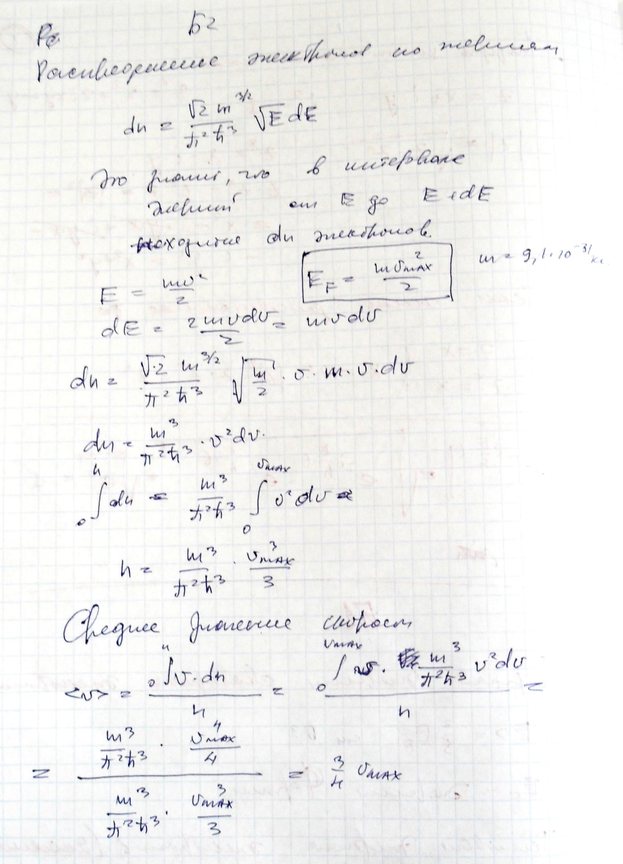 Б2
Распределение электронов по энергиям
dn = √2 m^3/2 / π²ħ³ √E dE
Это значит, что в интервале
энергий от E до E+dE
находится dn электронов.
E = mv²/2
E_F = mv_max²/2
m = 9,1·10^-31 кг
dE = 2mvdv/2 = mvdv
dn = √2 m^3/2 / π²ħ³ √(m/2) · v · m · v · dv
dn = m³/π²ħ³ · v²dv.
₀∫ⁿ dn = m³/π²ħ³ ₀∫^vmax v² dv
n = m³/π²ħ³ · v_max³/3
Среднее значение скорости
<v> = ₀∫ⁿ v·dn / n = ₀∫^vmax v · m³/π²ħ³ v²dv / n =
= (m³/π²ħ³ · v_max⁴/4) / (m³/π²ħ³ · v_max³/3) = 3/4 v_max